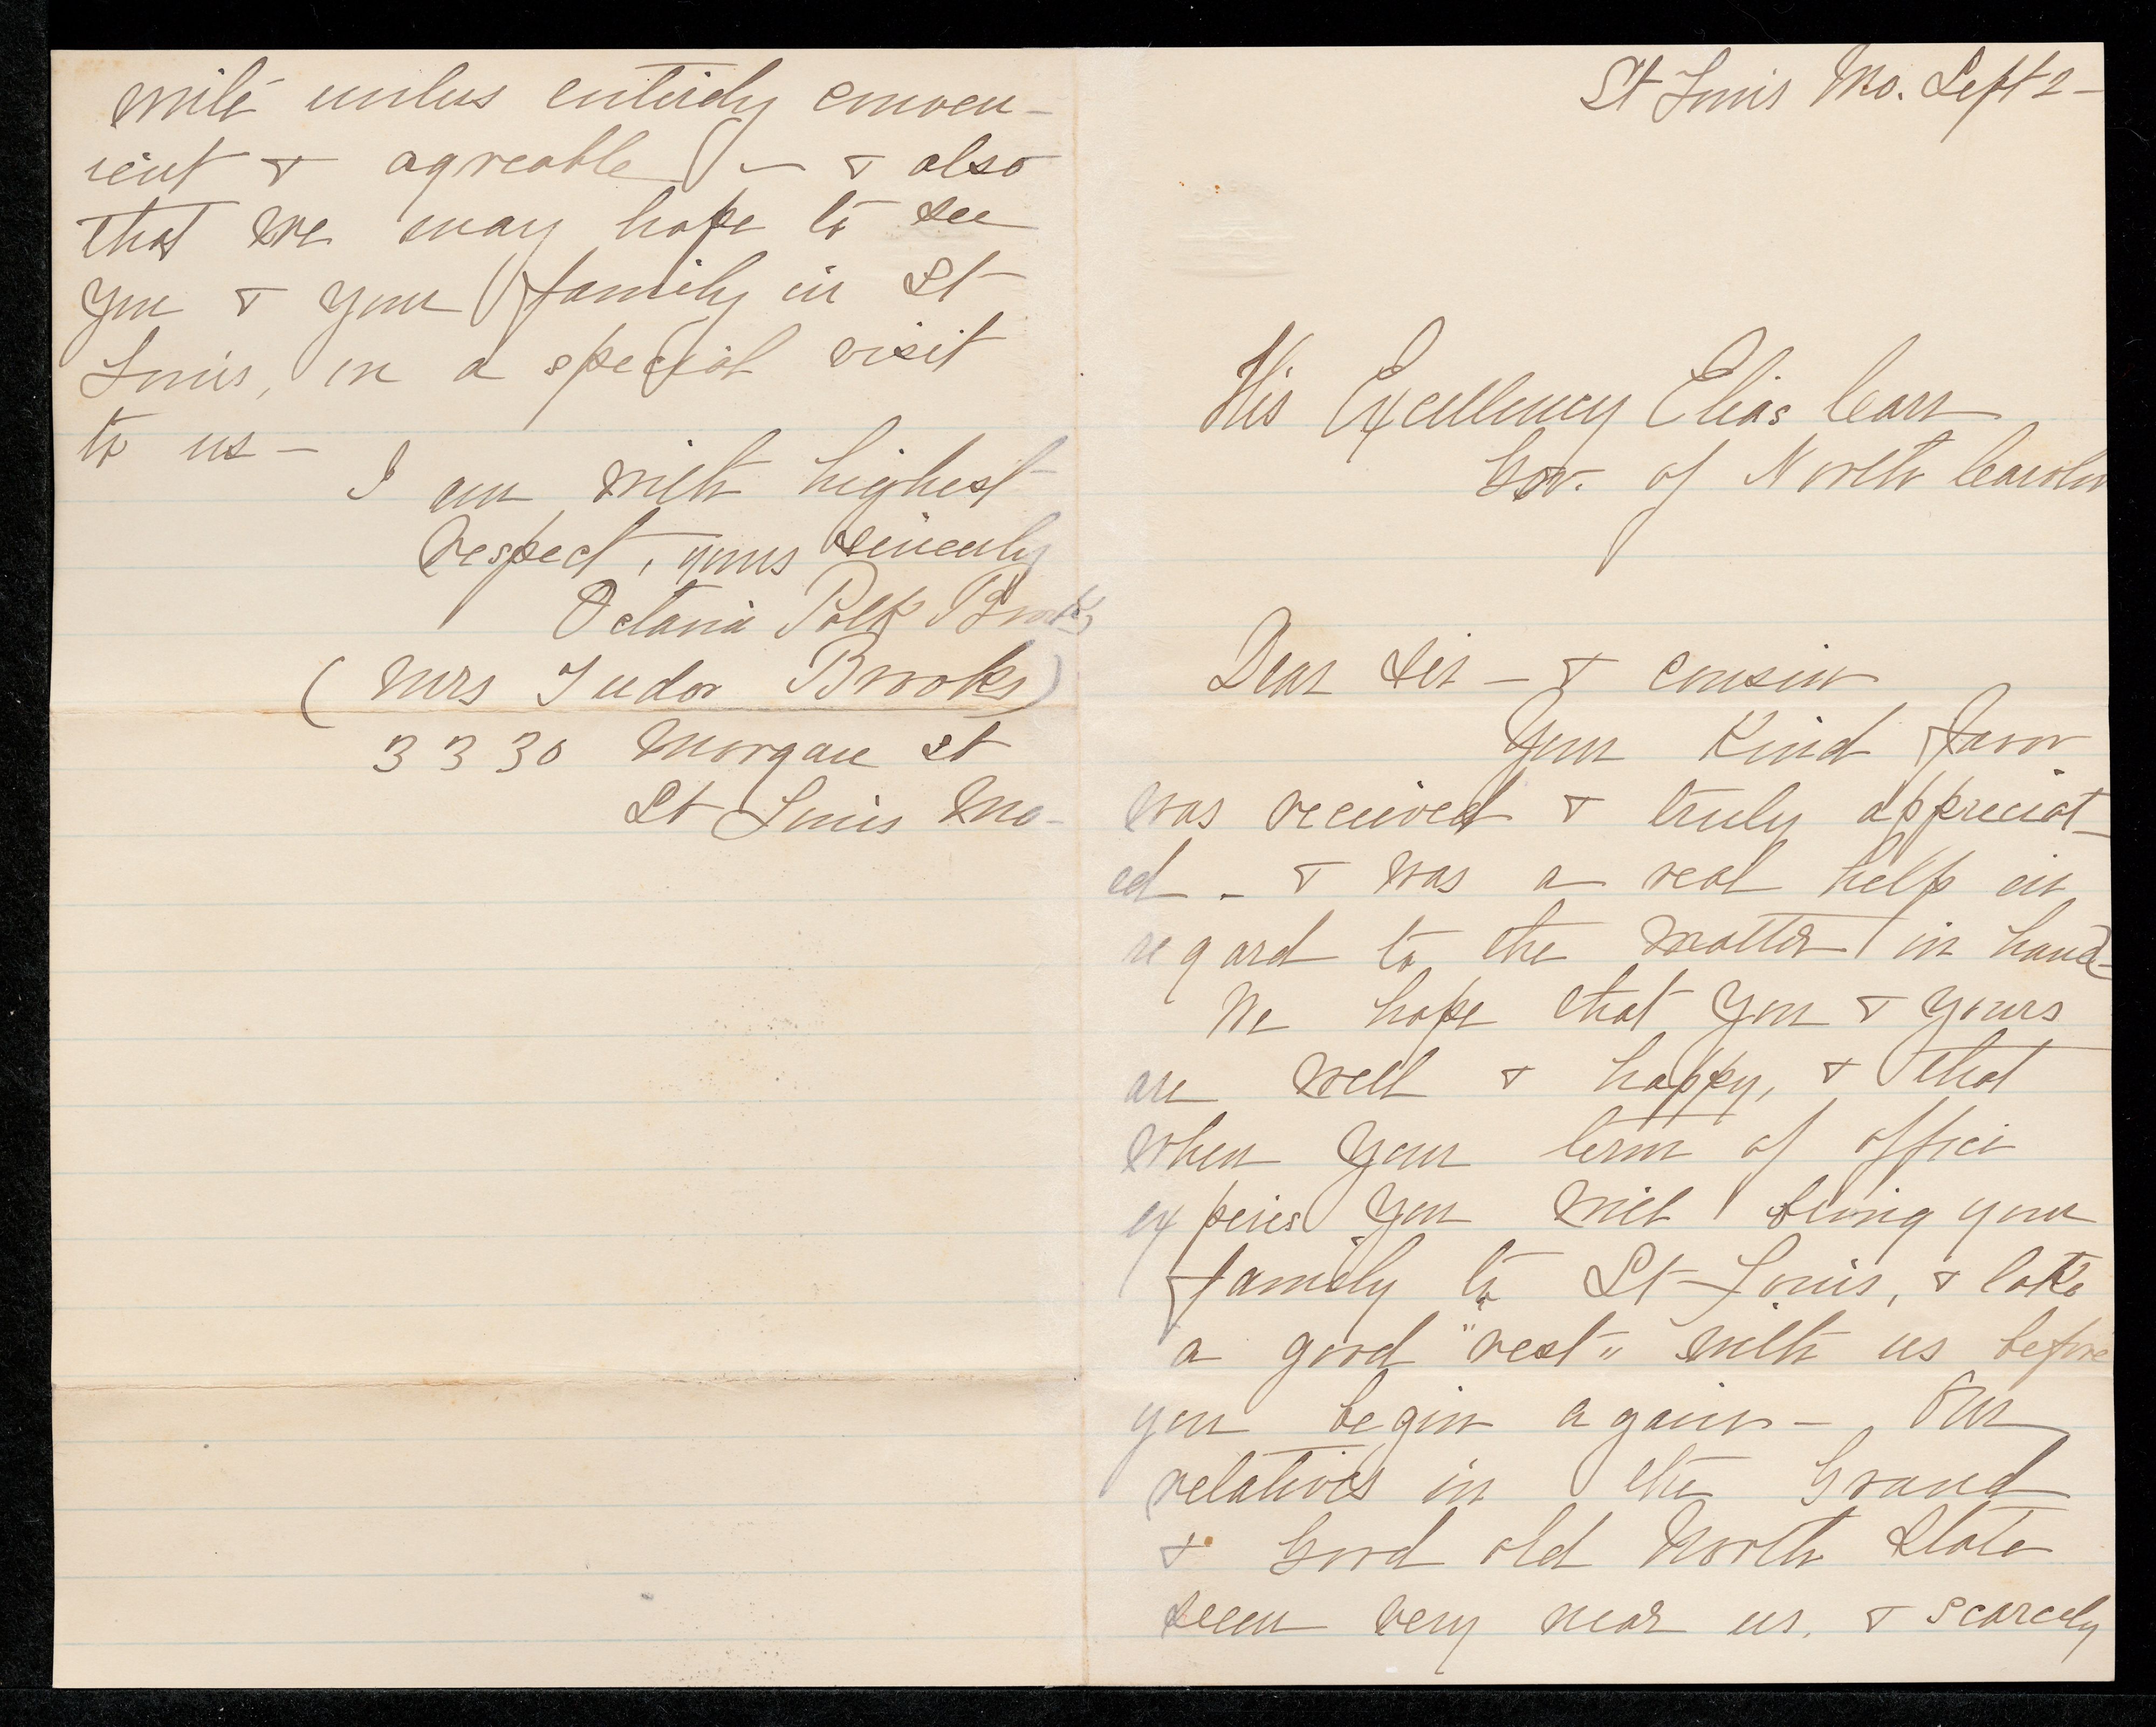 St Louis Mo. Sept 2 -
His Excellency Elias Carr
Gov. of North Carolin
Dear Sir - & cousin
Your Kind favor
was received & truly appreciat-
ed - & was a real help in
regard to the matter in hand -
We hope that you & yours
are well & happy, & that
when your term of office
expires you will bring your
family to St Louis, & take
a good "rest" with us before
you begin again - Our
relatives in the Grand
& Good old North State
seem very near us. & scarcely
write unless entirely conven-
ient & agreable - & also
that we may hope to see
you & your family in St
Louis, in a special visit
to us -
I am with highest
respect, yours sincerely
Octavia Polk Brooks
(Mrs Tudor Brooks)
3330 Morgan st
St Louis Mo -